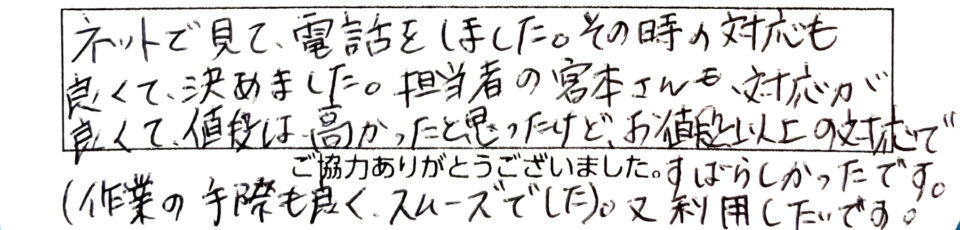 ネットで見て、電話をしました。その時の対応も
良くて、決めました。担当者の宮本さんも、対応が
良くて、値段は高かったと思ったけど、お値段以上の対応で
ご協力ありがとうございました。
すばらしかったです。
(作業の手際も良く、スムーズでした)。又利用したいです。